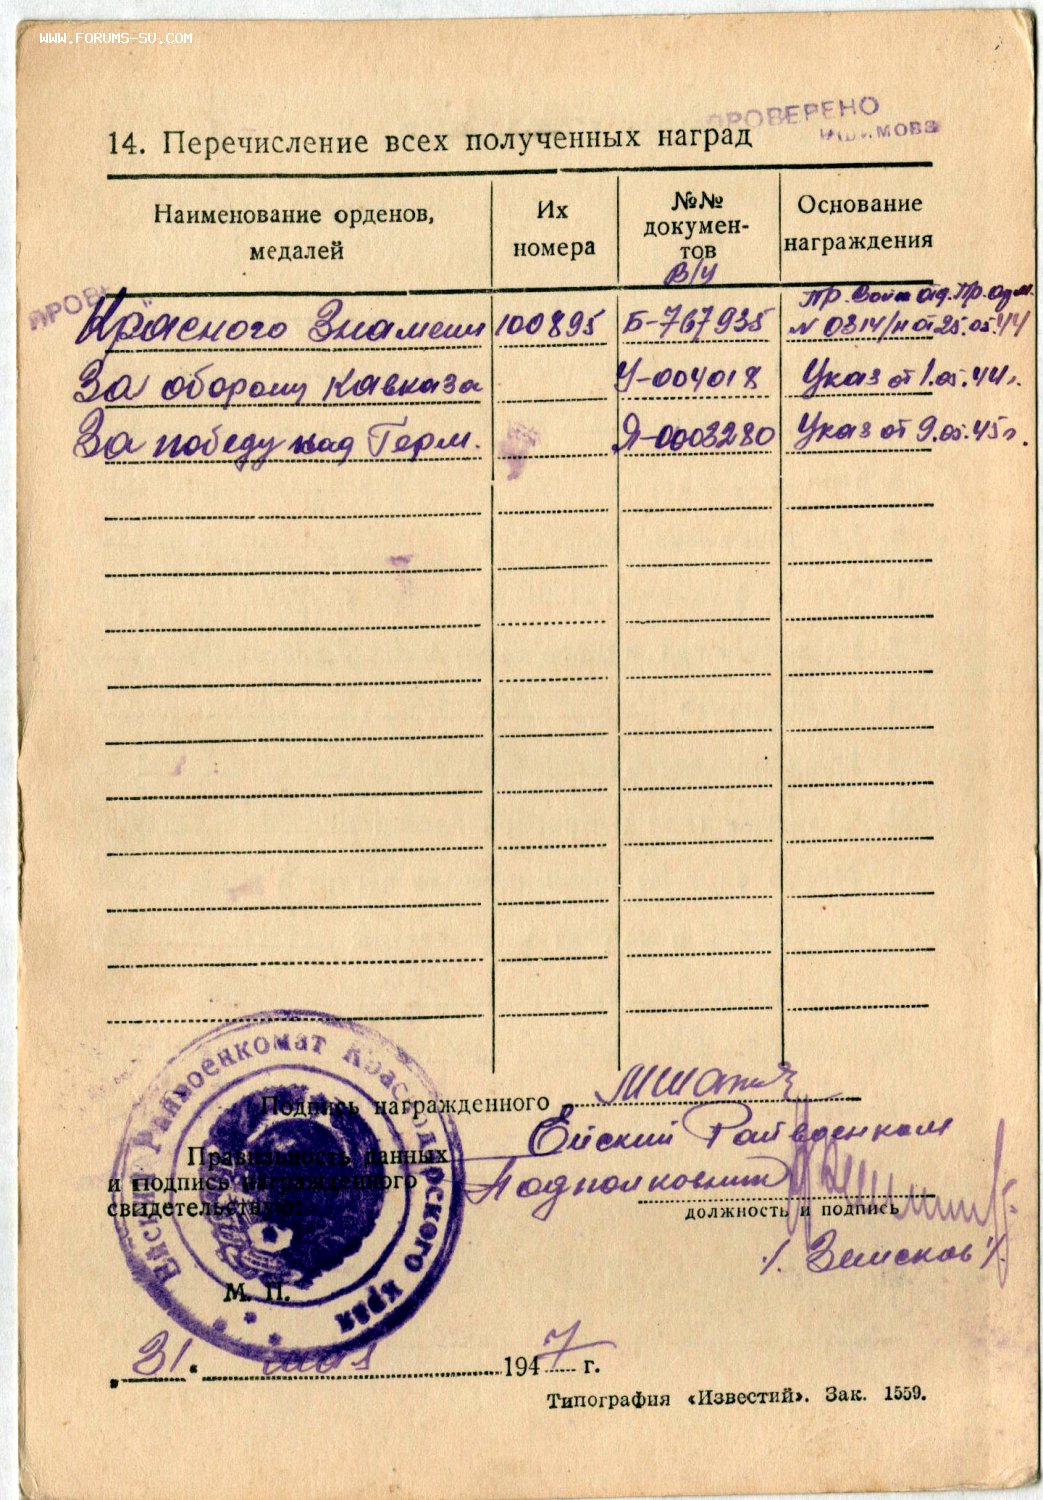 WWW.FORUMS-SU.COM
ПРОВЕРЕНО
14. Перечисление всех полученных наград
Наименование орденов, медалей
Их номера
№№ документов
В/У
Основание награждения
ПРОВЕ
"Красного Знамени 100895 Б-767935 Пр. Войск Отд. Пр. Арм. N 0314/н от 25.05.44
За оборону Кавказа У-004018 Указ от 1.05.44 г.
За победу над Герм. Я-0003280 Указ от 9.05.45 г.
Ейский Райвоенкомат Краснодарского края
Подпись награжденного
Правильность данных
и подпись награжденного
свидетельствую:
Ейский Райвоенком
Подполковник
должность и подпись
/. Земсков /.
М. П.
„31“ мая 1947 г.
Типография «Известий». Зак. 1559.